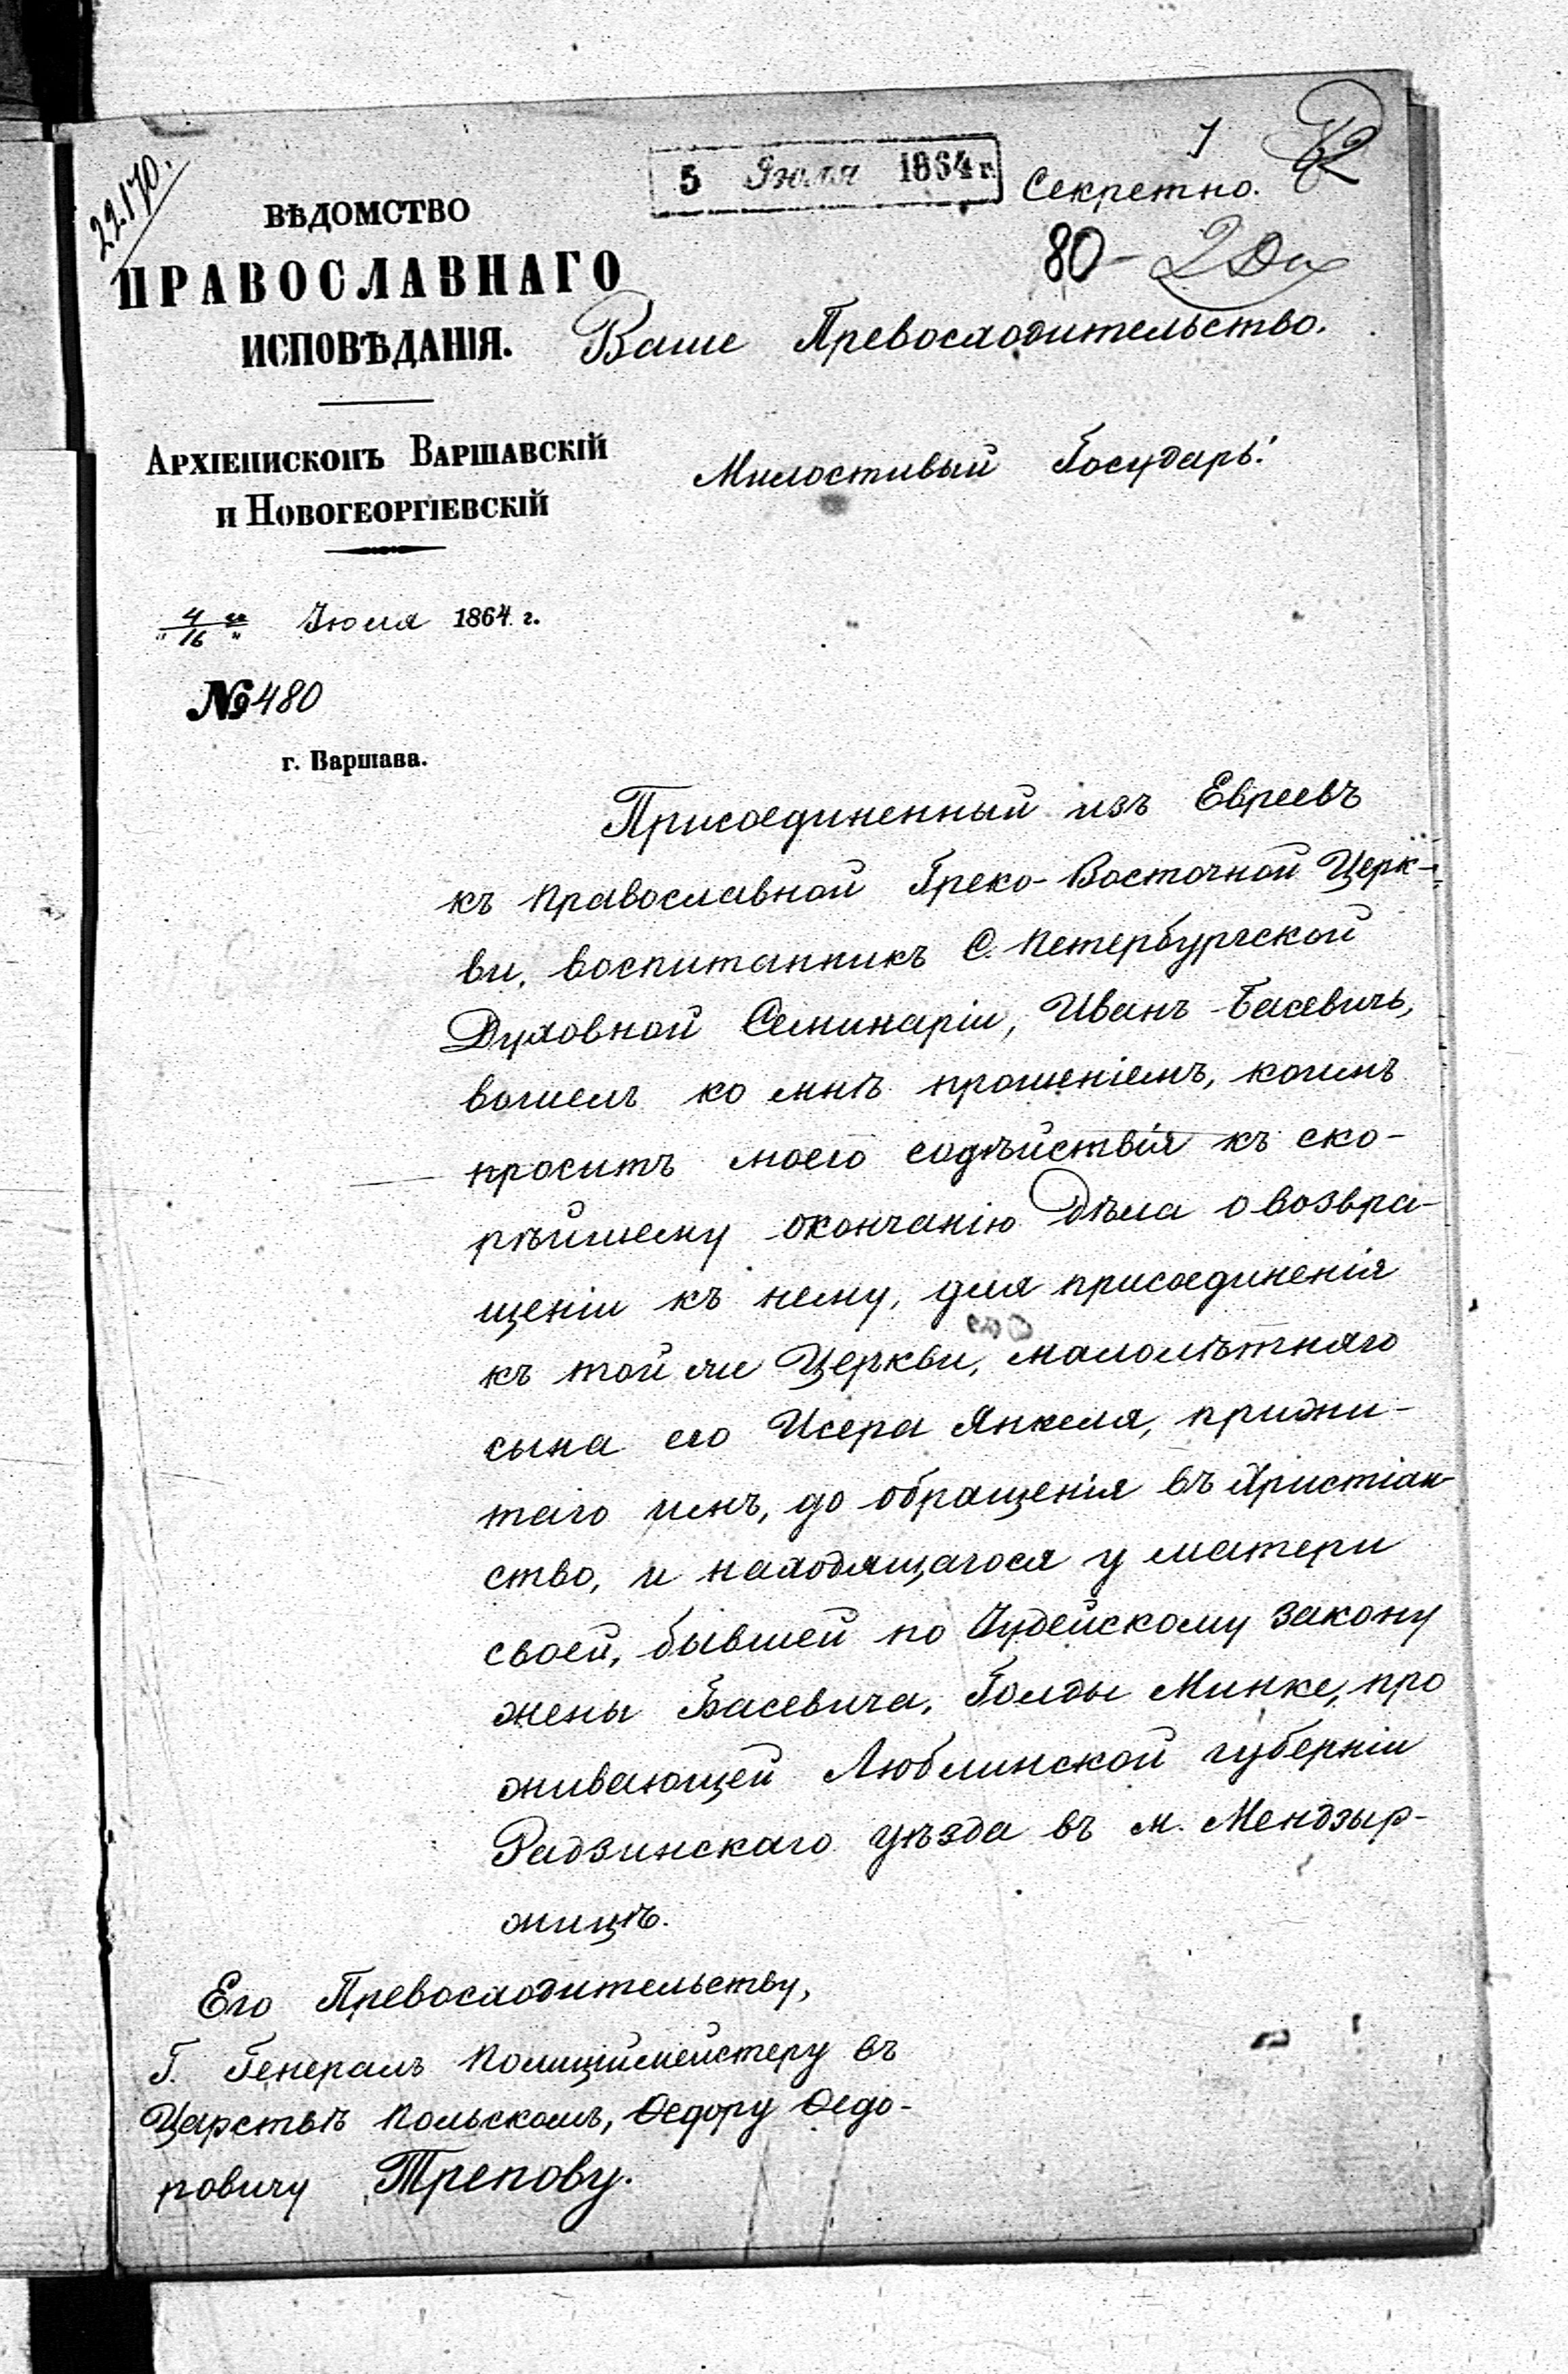 22.170.
5 Июля 1864 г.
1
Секретно.
80-
ВѢДОМСТВО
ПРАВОСЛАВНАГО
ИСПОВѢДАНІЯ.
Ваше Превосходительство.
АРХІЕПИСКОПЪ ВАРШАВСКІЙ
И НОВОГЕОРГІЕВСКІЙ
Милостивый Государь!
" 4/16 " Іюля 1864 г.
№ 480
г. Варшава.
Присоединенный изъ Евреевъ
къ Православной Греко-Восточной Церк-
ви, воспитанникъ С. Петербургской
Духовной Семинаріи, Иванъ Басевичъ,
вошелъ ко мнѣ прошеніемъ, коимъ
проситъ моего содѣйствія къ ско-
рѣйшему окончанію дѣла о возвра-
щеніи къ нему, для присоединенія
къ той же Церкви, малолѣтняго
сына его Исера Янкеля, прижи-
таго имъ, до обращенія въ Христіан-
ство, и находящагося у матери
своей, бывшей по Іудейскому закону
жены Басевича, Голды Минке, про
живающей Люблинской губерніи
Радзинскаго уѣзда въ м. Мендзыр-
жицѣ.
Его Превосходительству,
Г. Генералъ Полиціймейстеру въ
Царствѣ Польскомъ, Ѳедору Ѳедо-
ровичу Трепову.